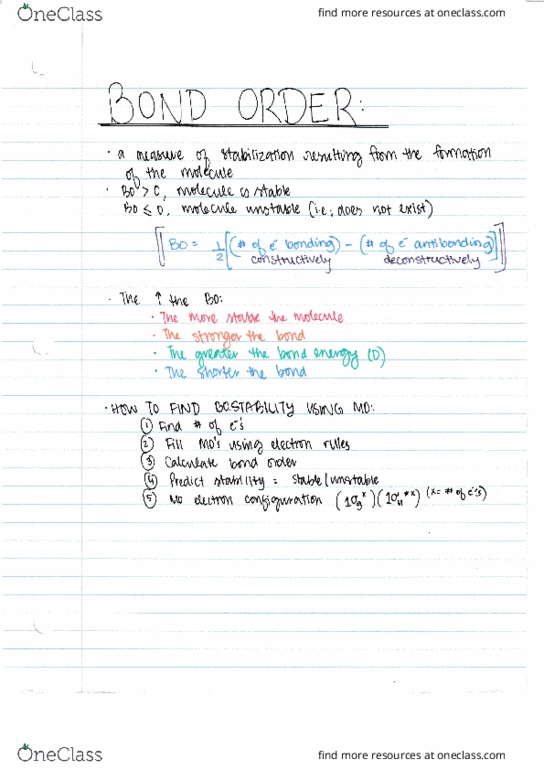 OneClass
find more resources at oneclass.com
BOND ORDER:
· a measure of stabilization resulting from the formation
of the molecule
· BO > 0, molecule is stable
BO ≤ 0, molecule unstable (i.e; does not exist)
BO = 1/2 [(# of e⁻ bonding) - (# of e⁻ antibonding)]
constructively deconstructively
· The ↑ the BO:
· The more stable the molecule
· The stronger the bond
· The greater the bond energy (D)
· The shorter the bond
· HOW TO FIND BOSTABILITY USING MO:
① Find # of e⁻'s
② Fill MO's using electron rules
③ Calculate bond order
④ Predict stability = stable/unstable
⑤ MO electron configuration (1σg^x)(1σu*^x) (x = # of e⁻'s)
OneClass
find more resources at oneclass.com